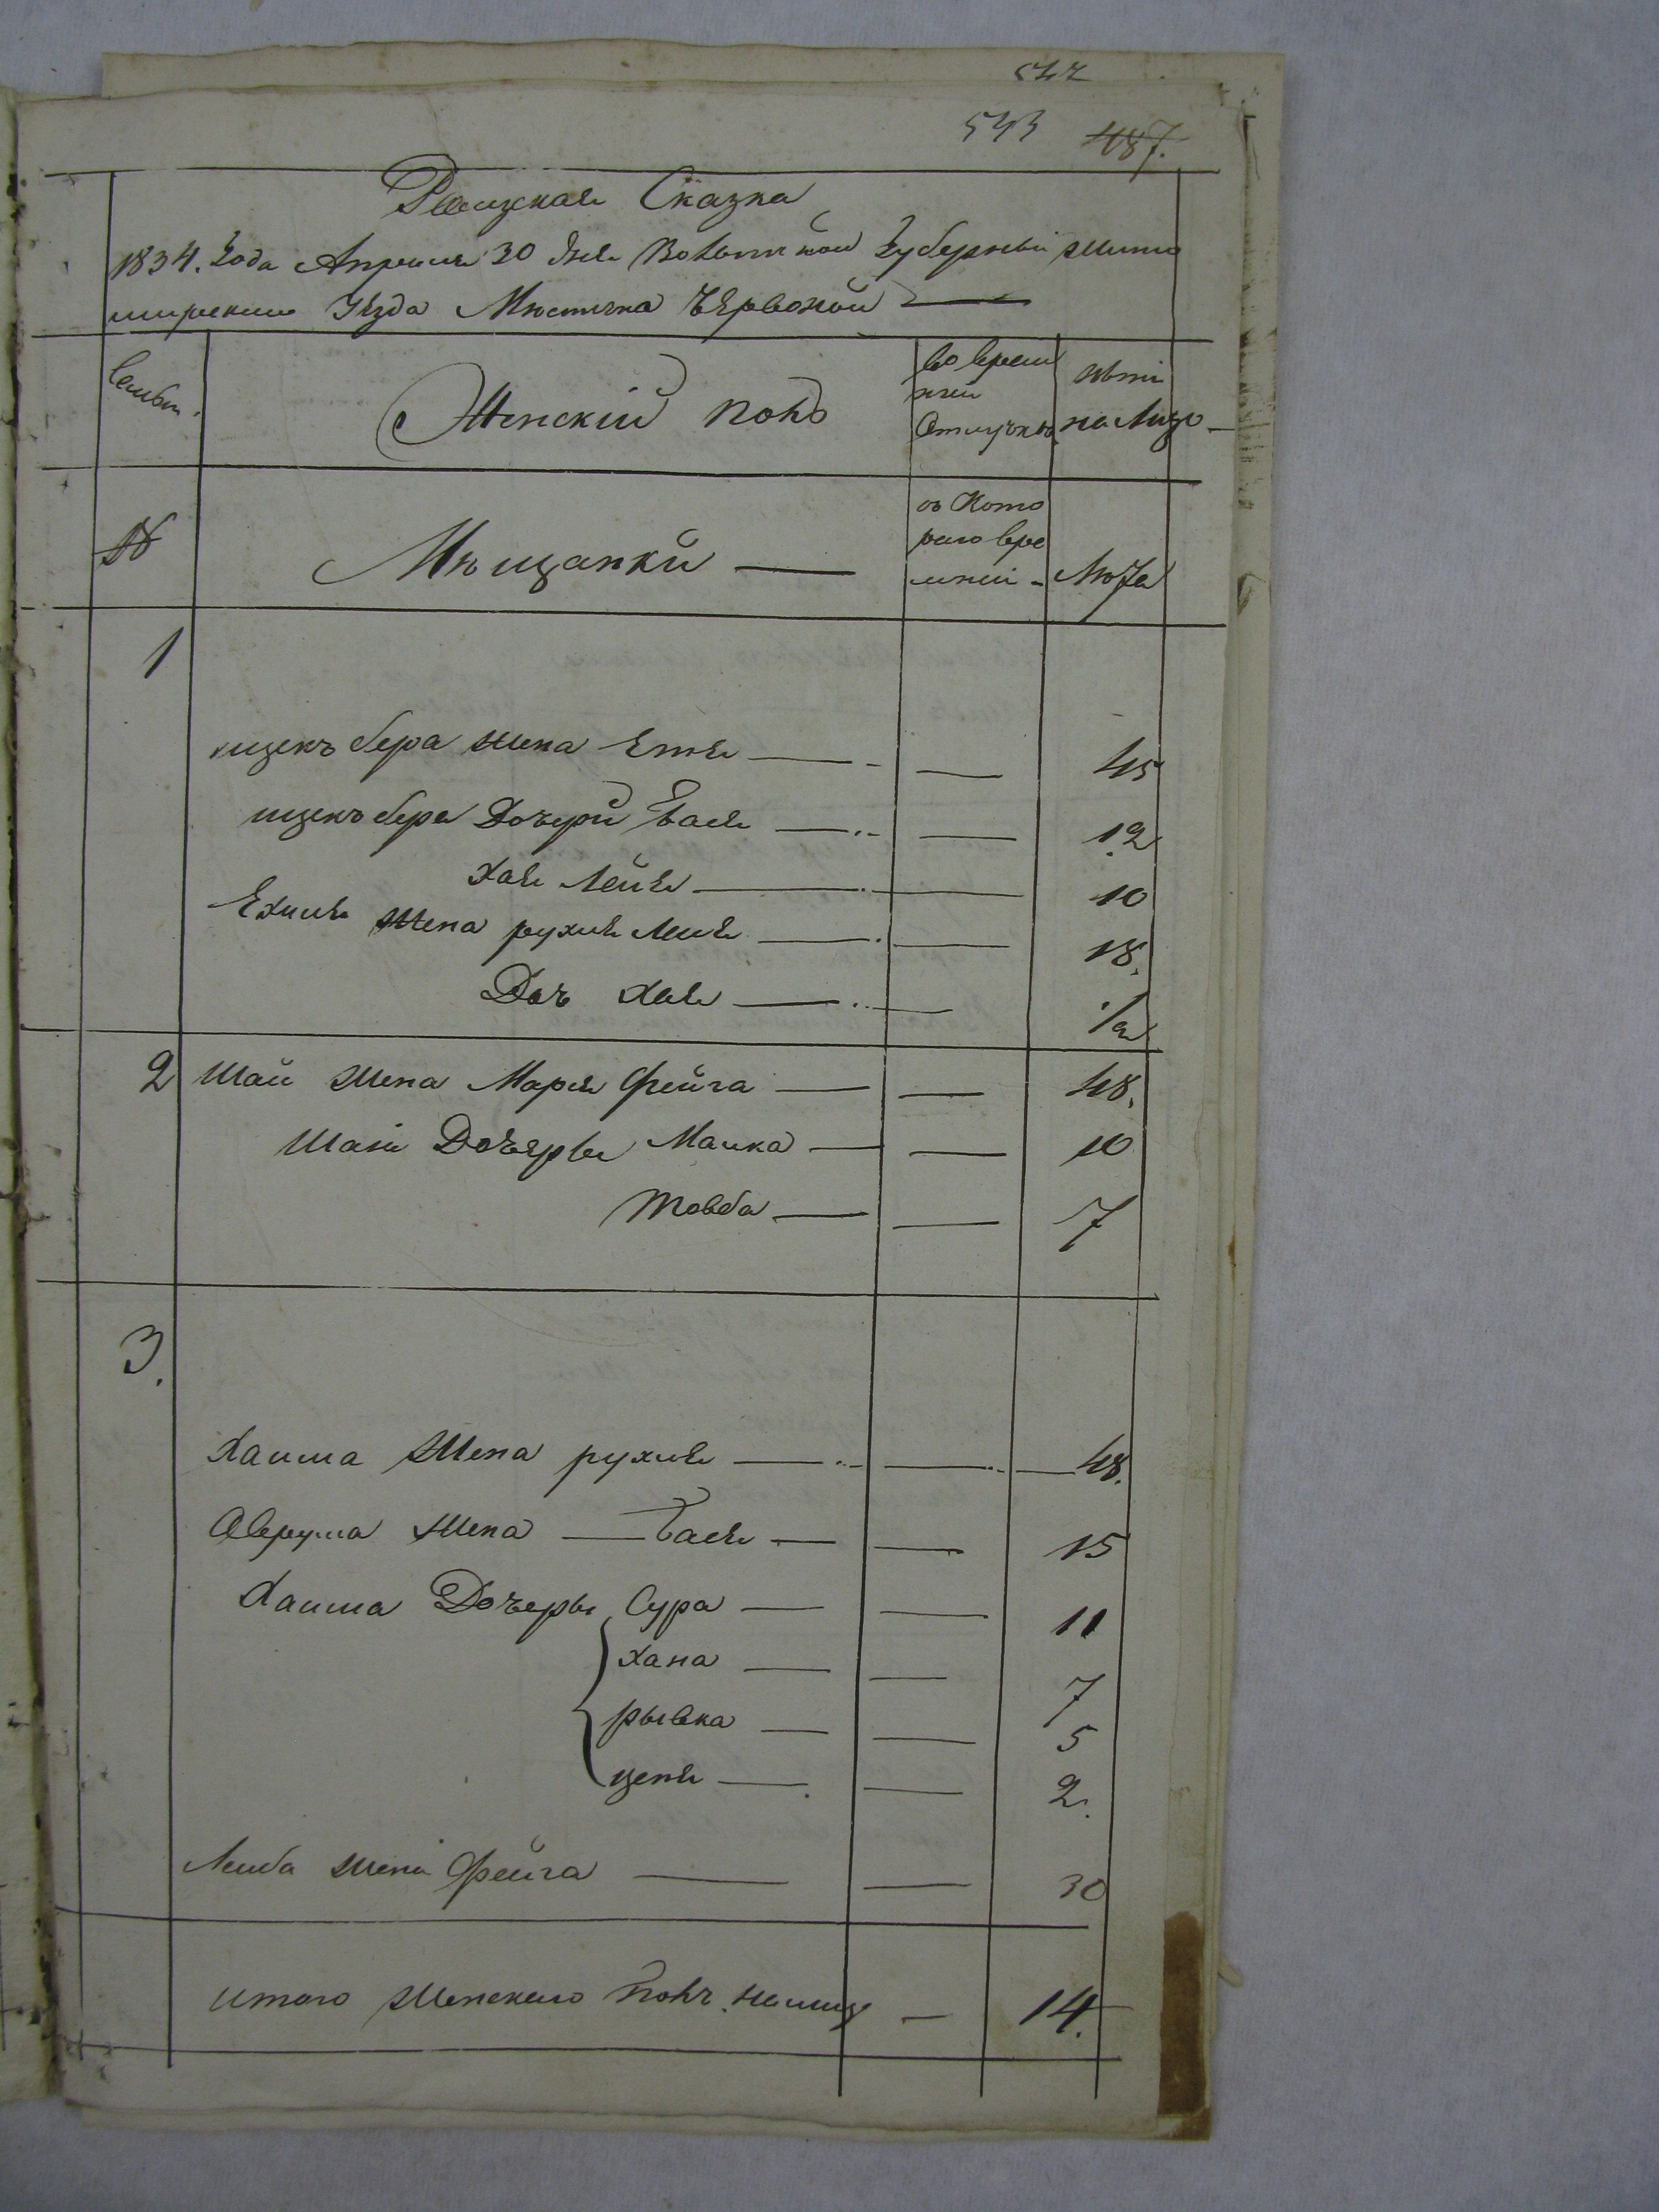 543 487.
Ревизская Сказка
1834. Года Апреля 30 дня Волынской Губерныи Жито
мирскаго Уезда Местечка Червоной
Семьи.
Женский полъ
Во времен
ной
Отлучкъ
на Лицо
№
Мещанки
съ Кото
раго вре
мени
Лета
1
ицекъ бера жена Етя — — 45
ицекъ бера Дочери Бася — — 12
Хая Лейя — — 10
Ехиля Жена рухля Лия — — 18.
Доч Хая — — 1/2
2 Шаи Жена Маря Фейга — — 48.
Шаи Дочеры Малка — — 10
Товба — — 7
3.
Хаима Жена рухля — — 48.
Аврума Жена — Бася — — 15
Хаима Дочеры Сура — — 11
Хана — — 7
рывка — — 5
ценя — — 2.
Лейба Жена Фейга — — 30
итого Женскаго Полъ налице — 14.